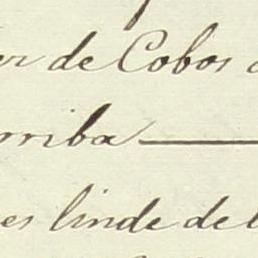 er de Cobos
rriba
es linde de